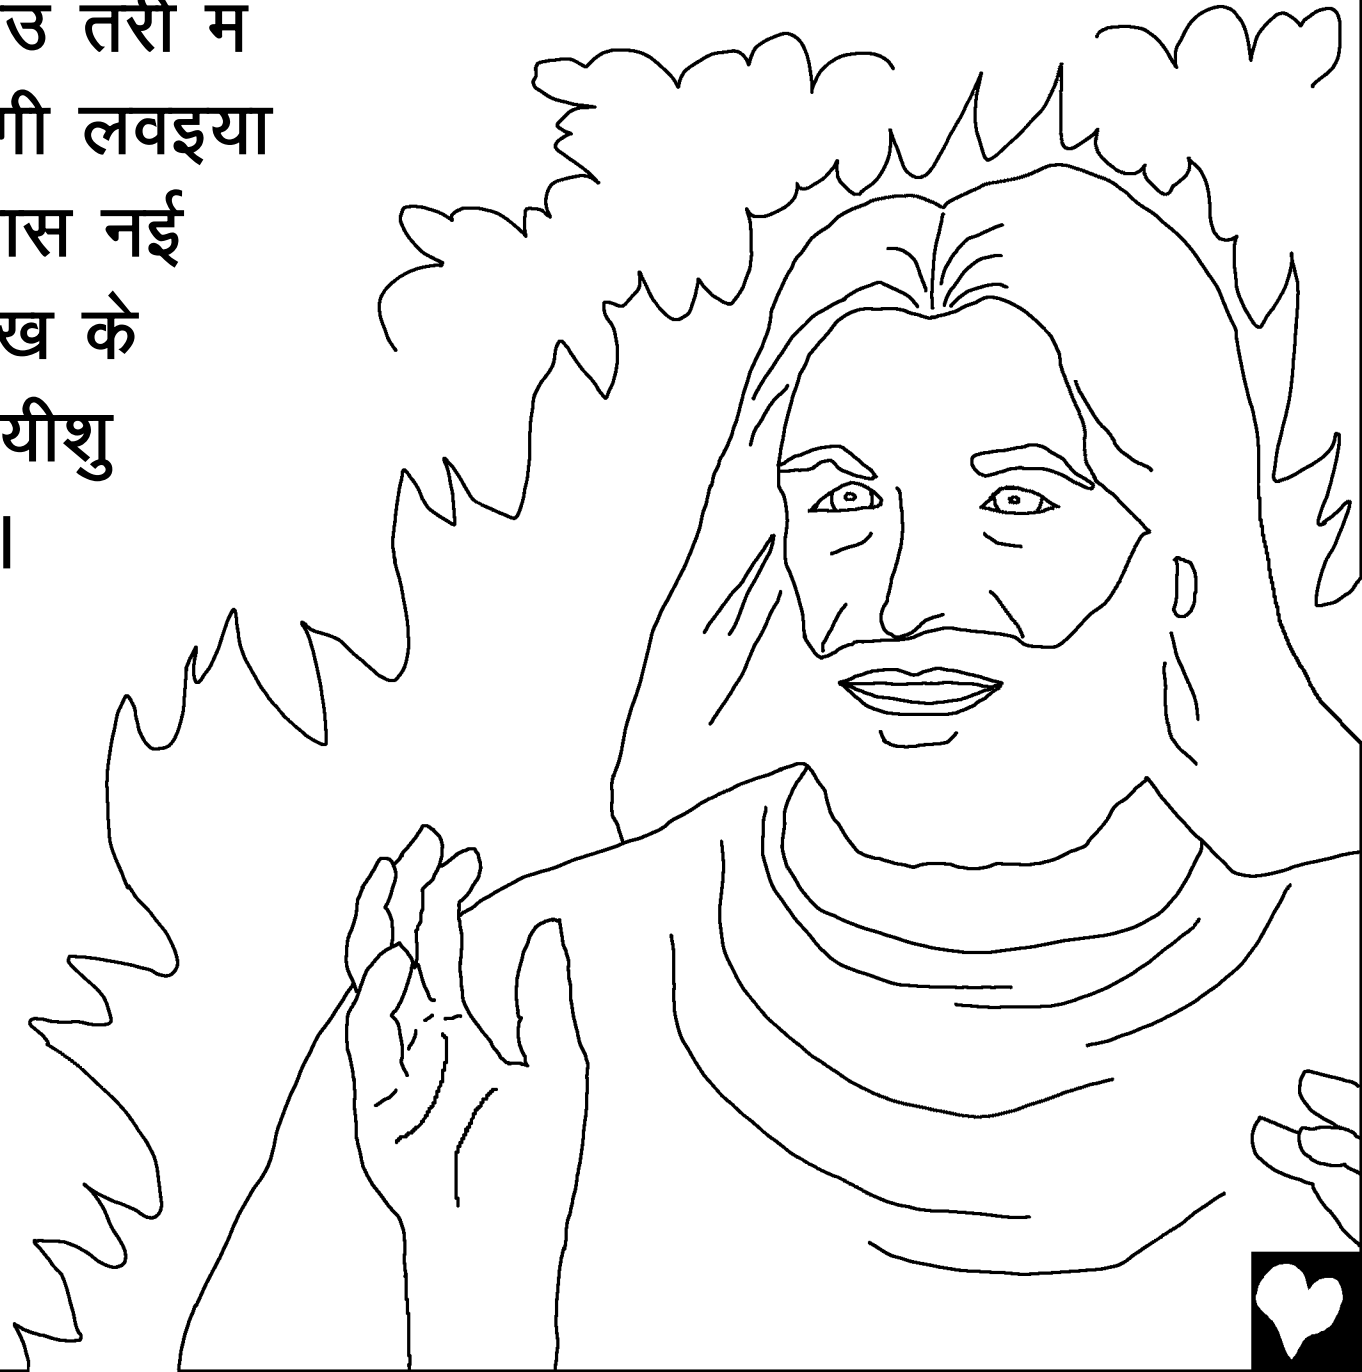 उ तरी म
गी लवइया
ास नई
ख के
यीशु
।